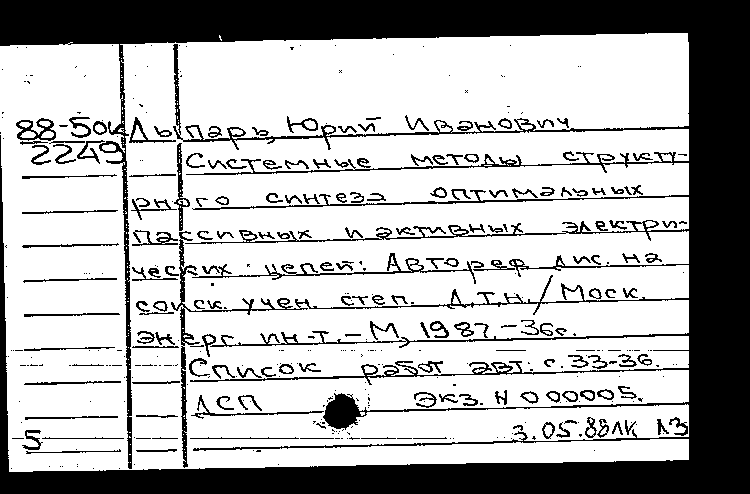 88-5ок Лыпарь, Юрий Иванович
2249 Системные методы структу-
рного синтеза оптимальных
пассивных и активных электри-
ческих цепей: Автореф дис. на
соиск. учен. степ. д.т.н. / Моск.
энерг. ин-т. - М, 1987. - 36с.
Список работ авт: с. 33-36.
ДСП Экз. N 000005.
5 3.05.88ЛК ЛЗ